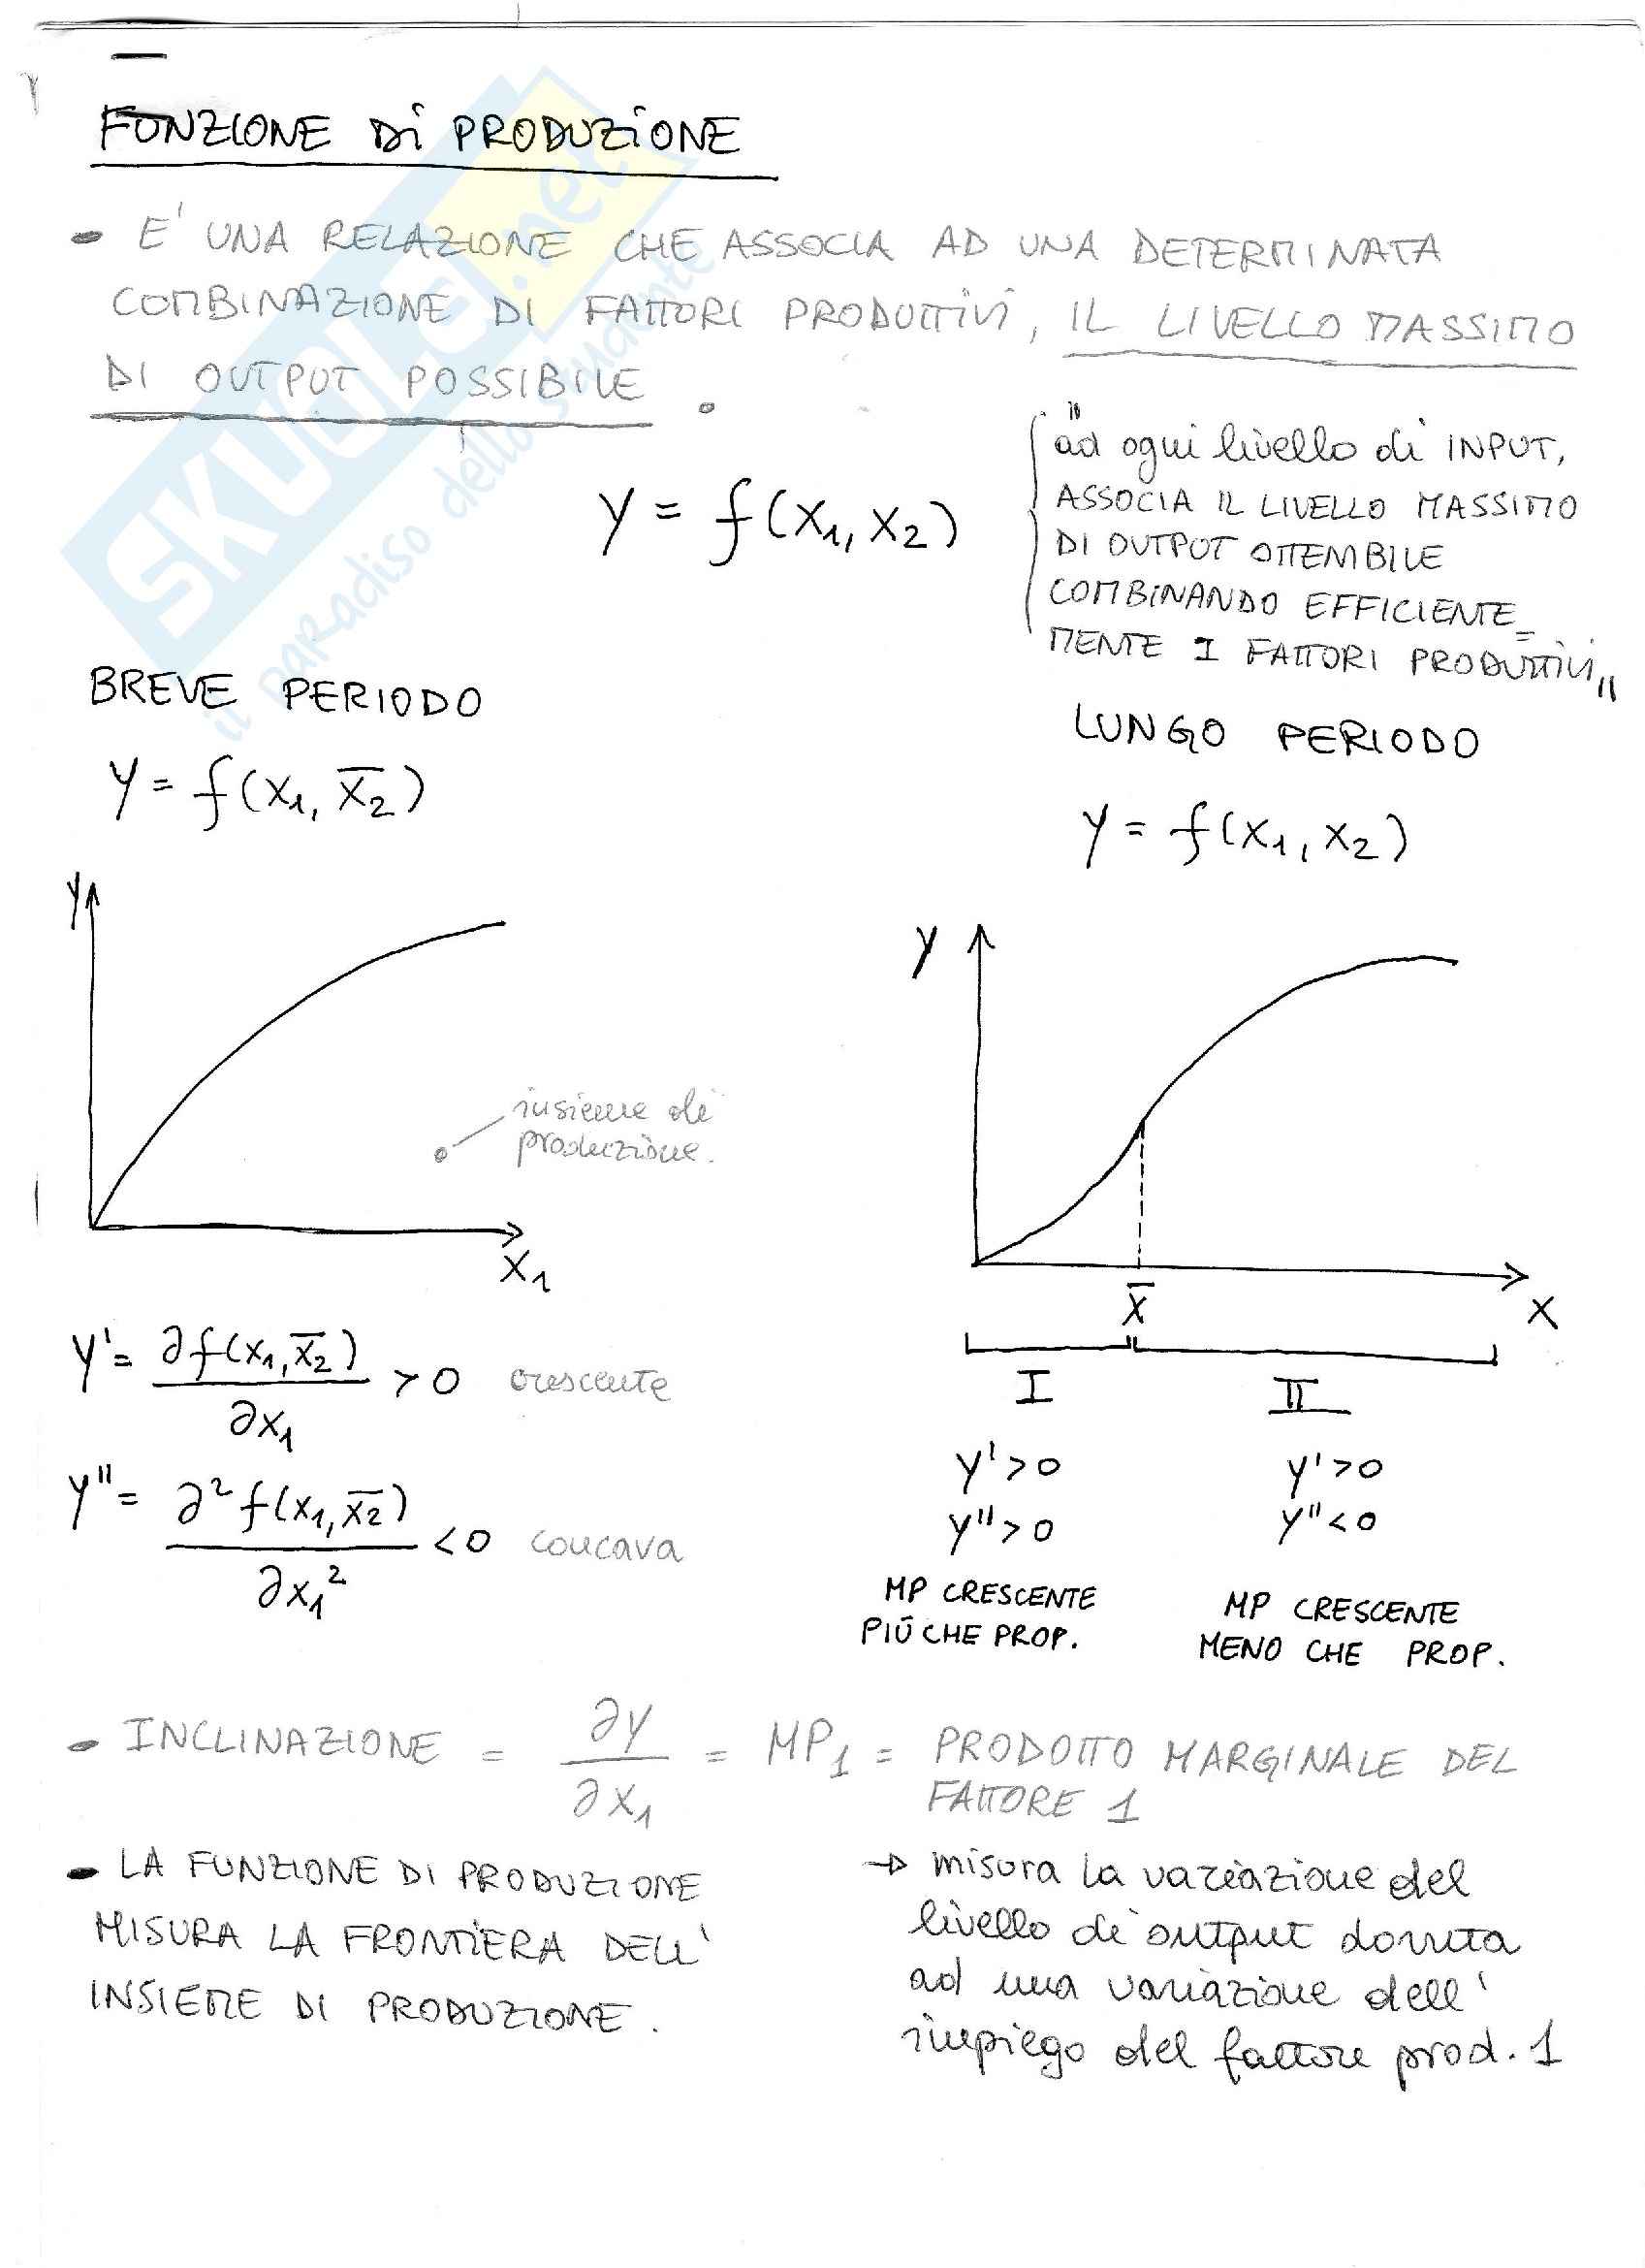 FUNZIONE Di PRODUZiONE
- E' UNA RELAZIONE CHE ASSOCIA AD UNA DETERMINATA
COMBINAZIONE DI FATTORI PRODUTTIVI, IL LIVELLO MASSIMO
DI OUTPUT POSSIBILE.
y = f(x₁, x₂)
"ad ogni livello di INPUT,
ASSOCIA IL LIVELLO MASSIMO
DI OUTPUT OTTENIBILE
COMBINANDO EFFICIENTE=
MENTE I FATTORI PRODUTTIVI"
BREVE PERIODO
y = f(x₁, x̄₂)
LUNGO PERIODO
y = f(x₁, x₂)
y
insieme di
produzione.
x₁
y
x̄
x
I
II
y' = ∂f(x₁, x̄₂) / ∂x₁ > 0 crescente
y'' = ∂²f(x₁, x̄₂) / ∂x₁² < 0 concava
y' > 0
y'' > 0
MP CRESCENTE
PIÚ CHE PROP.
y' > 0
y'' < 0
MP CRESCENTE
MENO CHE PROP.
- INCLINAZIONE = ∂y / ∂x₁ = MP₁ = PRODOTTO MARGINALE DEL
FATTORE 1
- LA FUNZIONE DI PRODUZIONE
MISURA LA FRONTIERA DELL'
INSIEME DI PRODUZIONE.
→ misura la variazione del
livello di output dovuta
ad una variazione dell'
impiego del fattore prod. 1
SKUOLA.net
il paradiso dello studente